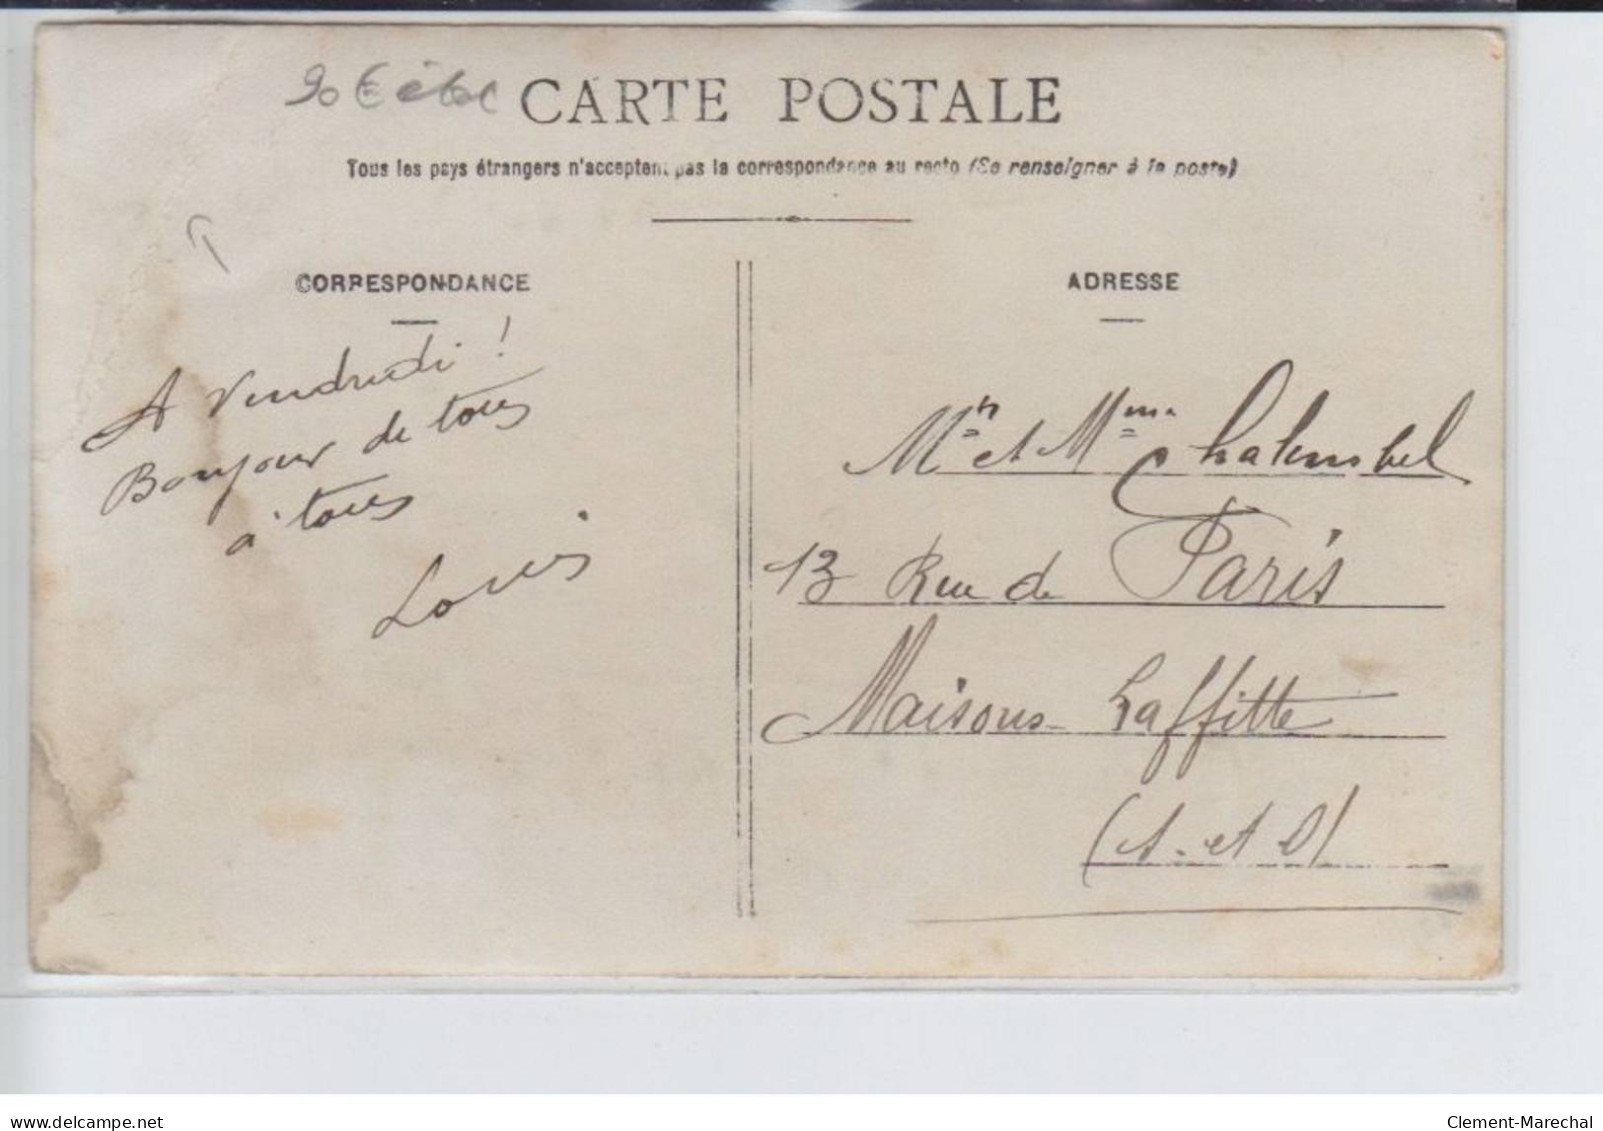 90 €
CARTE POSTALE
Tous les pays étrangers n'acceptent pas la correspondance au recto (Se renseigner à la poste)
CORRESPONDANCE
A Vendredi !
Bonjour de tous
à tous
Louis
ADRESSE
Mr et Mme
13 Rue de Paris
Maisons Laffitte
(S. et O)
www.delcampe.net
Clement-Marechal